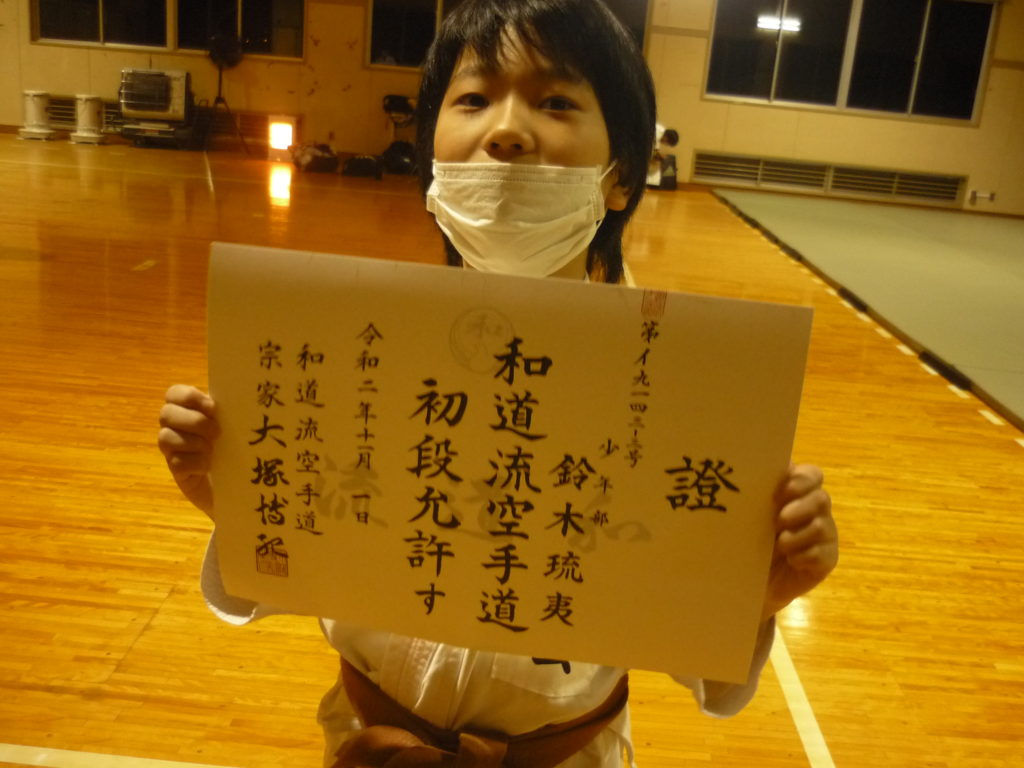 證
第イ九一四三-三号
少年部
鈴木琉夷
和道流空手道
初段允許す
令和二年十一月一日
和道流空手道
宗家大塚博紀